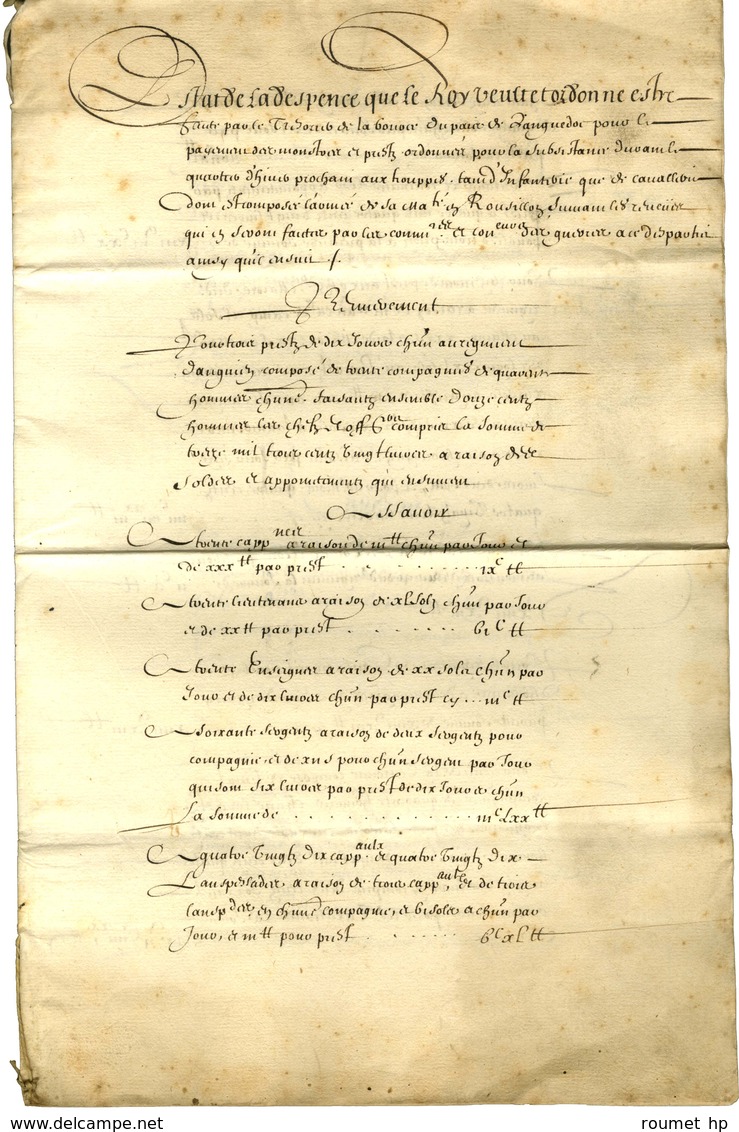 Estat de la despence que le Roy veult et ordonne estre
faicte par le Tresorier de la bource du païs de Languedoc pour le
payement des monstres et prestz ordonnés pour la subsistance durant le
quartier d'hiver prochain aux trouppes tant d'Infanterie que de cavallerie
dont est composée l'armée de sa Ma.té en Rousillon suivant les reveües
qui en seront faictes par les comm.res et con guerres a ce despartis
ainsy qu'il ensuit /.
Premierement
Pour trois prestz de dix jours ch'un au regiment
d'anguien composé de trente compagnies de quarente
hommes ch'une faisantz ensemble douze centz
hommes les chefz et off.ers compris la somme de
treze mil trois centz vingt livres a raison des
soldes et appointementz qui ensuivent
Assavoir
A trente capp.nes a raison de iii tt ch'un par jour et
de xxx tt par prest . . . . . . ix c tt
A trente lieutenans a raison de xl solz ch'un par jour
et de xx tt par prest . . . . . . . vi c tt
A trente Enseignes a raison de xx solz ch'un par
jour et de dix livres ch'un par prest cy . . iii c tt
A soixante sergentz a raison de deux sergentz pour
compagnie et de xii s pour ch'un sergent par jour
qui sont six livres par prest de dix jours a ch'un
la somme de . . . . . . . . . . . . iii c lxx tt
A quatre vingtz dix capp.aulx et quatre vingtz dix
Lanspessades a raison de trois capp.aulx et de trois
lansp.des en ch'une compagnie, et vi solz a ch'un par
jour, et iii tt pour prest . . . . . . v c xl tt
roumet hp